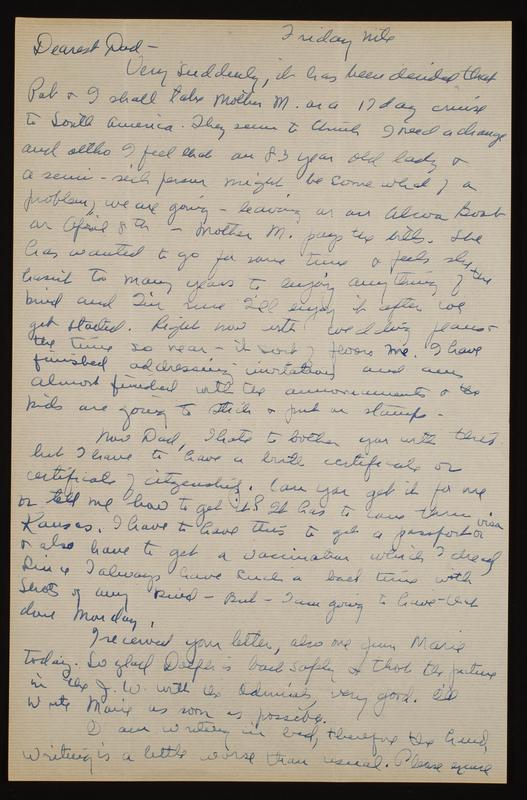 Friday nite
Dearest Dad -
Very suddenly, it has been decided that
Pat & I shall take Mother M. on a 17 day cruise
to South America. They seem to think I need a change
and altho I feel that an 83 year old lady &
a semi-sick person might be somewhat of a
problem, we are going - leaving on an Alcoa Boat
on April 8th - Mother M. pays the bills. She
has wanted to go for some time & feels she
hasn't too many years to enjoy anything of the
kind and I'm sure I'll enjoy it after we
get started. Right now with wedding plans &
the time so near - it sort of floors me. I have
finished addressing invitations and am
almost finished with the announcements & the
kids are going to stick & put on stamps -
Now Dad, I hate to bother you with this
but I have to have a birth certificate or
certificate of citizenship. Can you get it for me
or tell me how to get it? It has to come from
Kansas. I have to have this to get a passport or visa
& also have to get a vaccination which I dread
since I always have such a bad time with
shots of any kind - But - I am going to have that
done Monday.
I received your letter, also one from Marie
today. So glad is back safely & that the future
in the J. W. with the Admirals very good. I'll
write Marie as soon as possible.
I am writing in bed, therefore the hand
writing is a little worse than usual. Please